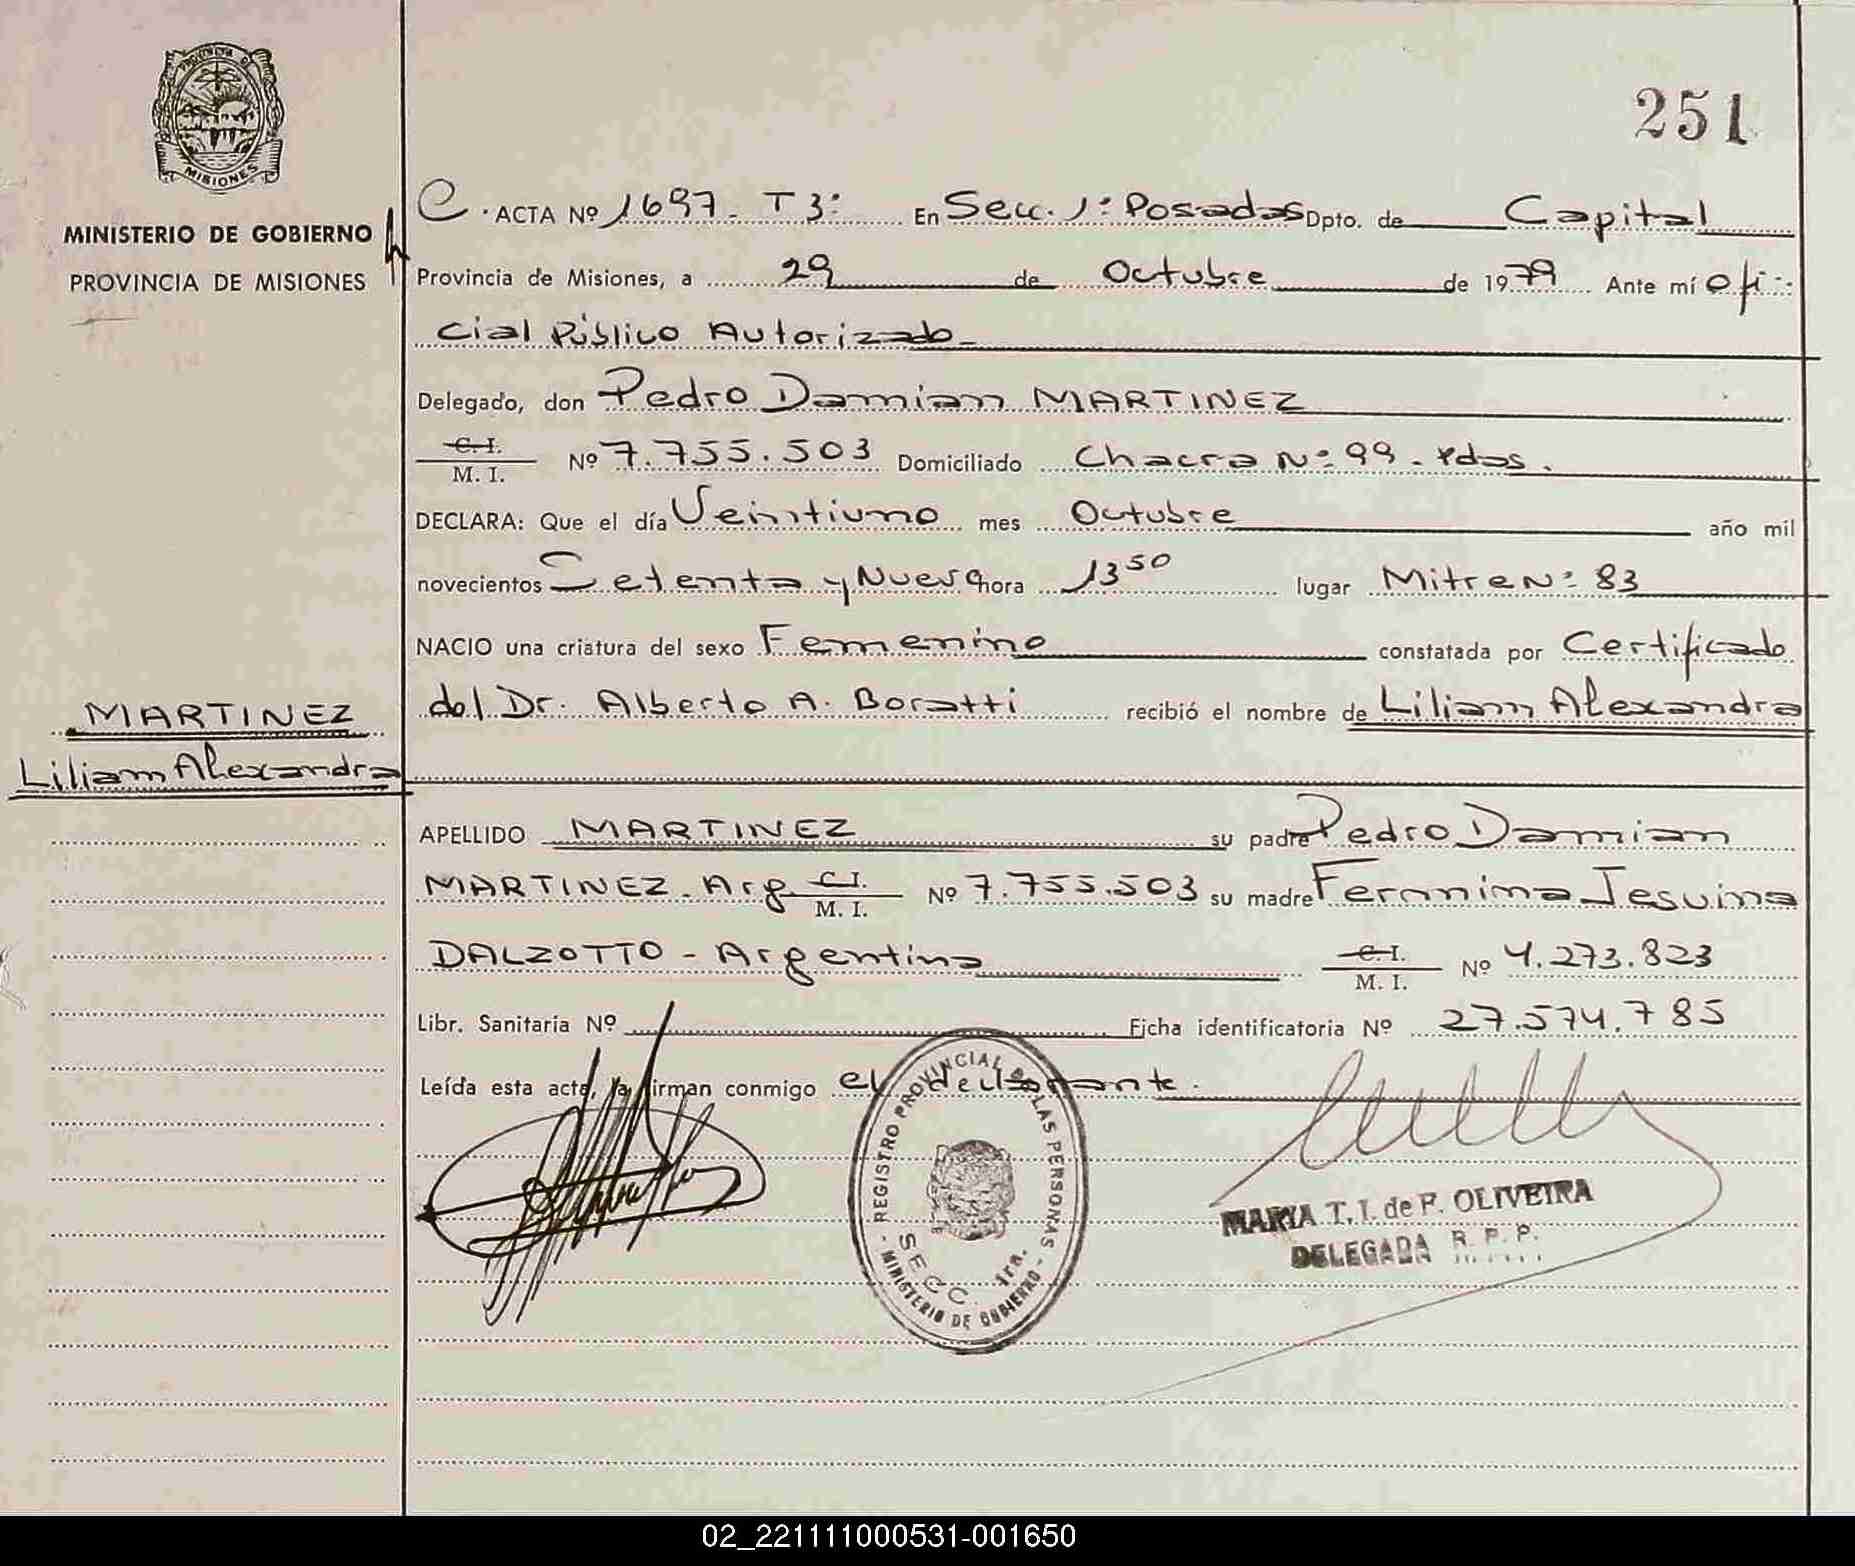 251
PROVINCIA DE
MISIONES
MINISTERIO DE GOBIERNO
PROVINCIA DE MISIONES
C. ACTA Nº 1697. T 3: En Secc. 1ª Posadas Dpto. de Capital
Provincia de Misiones, a 29 de Octubre de 1979 Ante mí ofi-
cial Público Autorizado
Delegado, don Pedro Damian MARTINEZ
C. I.
M. I. Nº 7.755.503 Domiciliado Chacra Nº 99. Pdas.
DECLARA: Que el día Veintiuno mes Octubre año mil
novecientos Setenta y Nueve hora 13 50 lugar Mitre Nº 83
NACIO una criatura del sexo Femenino constatada por Certificado
del Dr. Alberto A. Boratti recibió el nombre de Liliam Alexandra
MARTINEZ
Liliam Alexandra
APELLIDO MARTINEZ su padre Pedro Damian
MARTINEZ. Arg. C. I.
M. I. Nº 7.755.503 su madre Jesuina
DALZOTTO - Argentina C. I.
M. I. Nº 4.273.823
Libr. Sanitaria Nº Ficha identificatoria Nº 27.574.785
Leída esta acta, la firman conmigo el declarante.
REGISTRO PROVINCIAL DE LAS PERSONAS
SECC. 1ra.
MINISTERIO DE GOBIERNO
MARIA T. I. de F. OLIVEIRA
DELEGADA R. P. P.
02_221111000531-001650